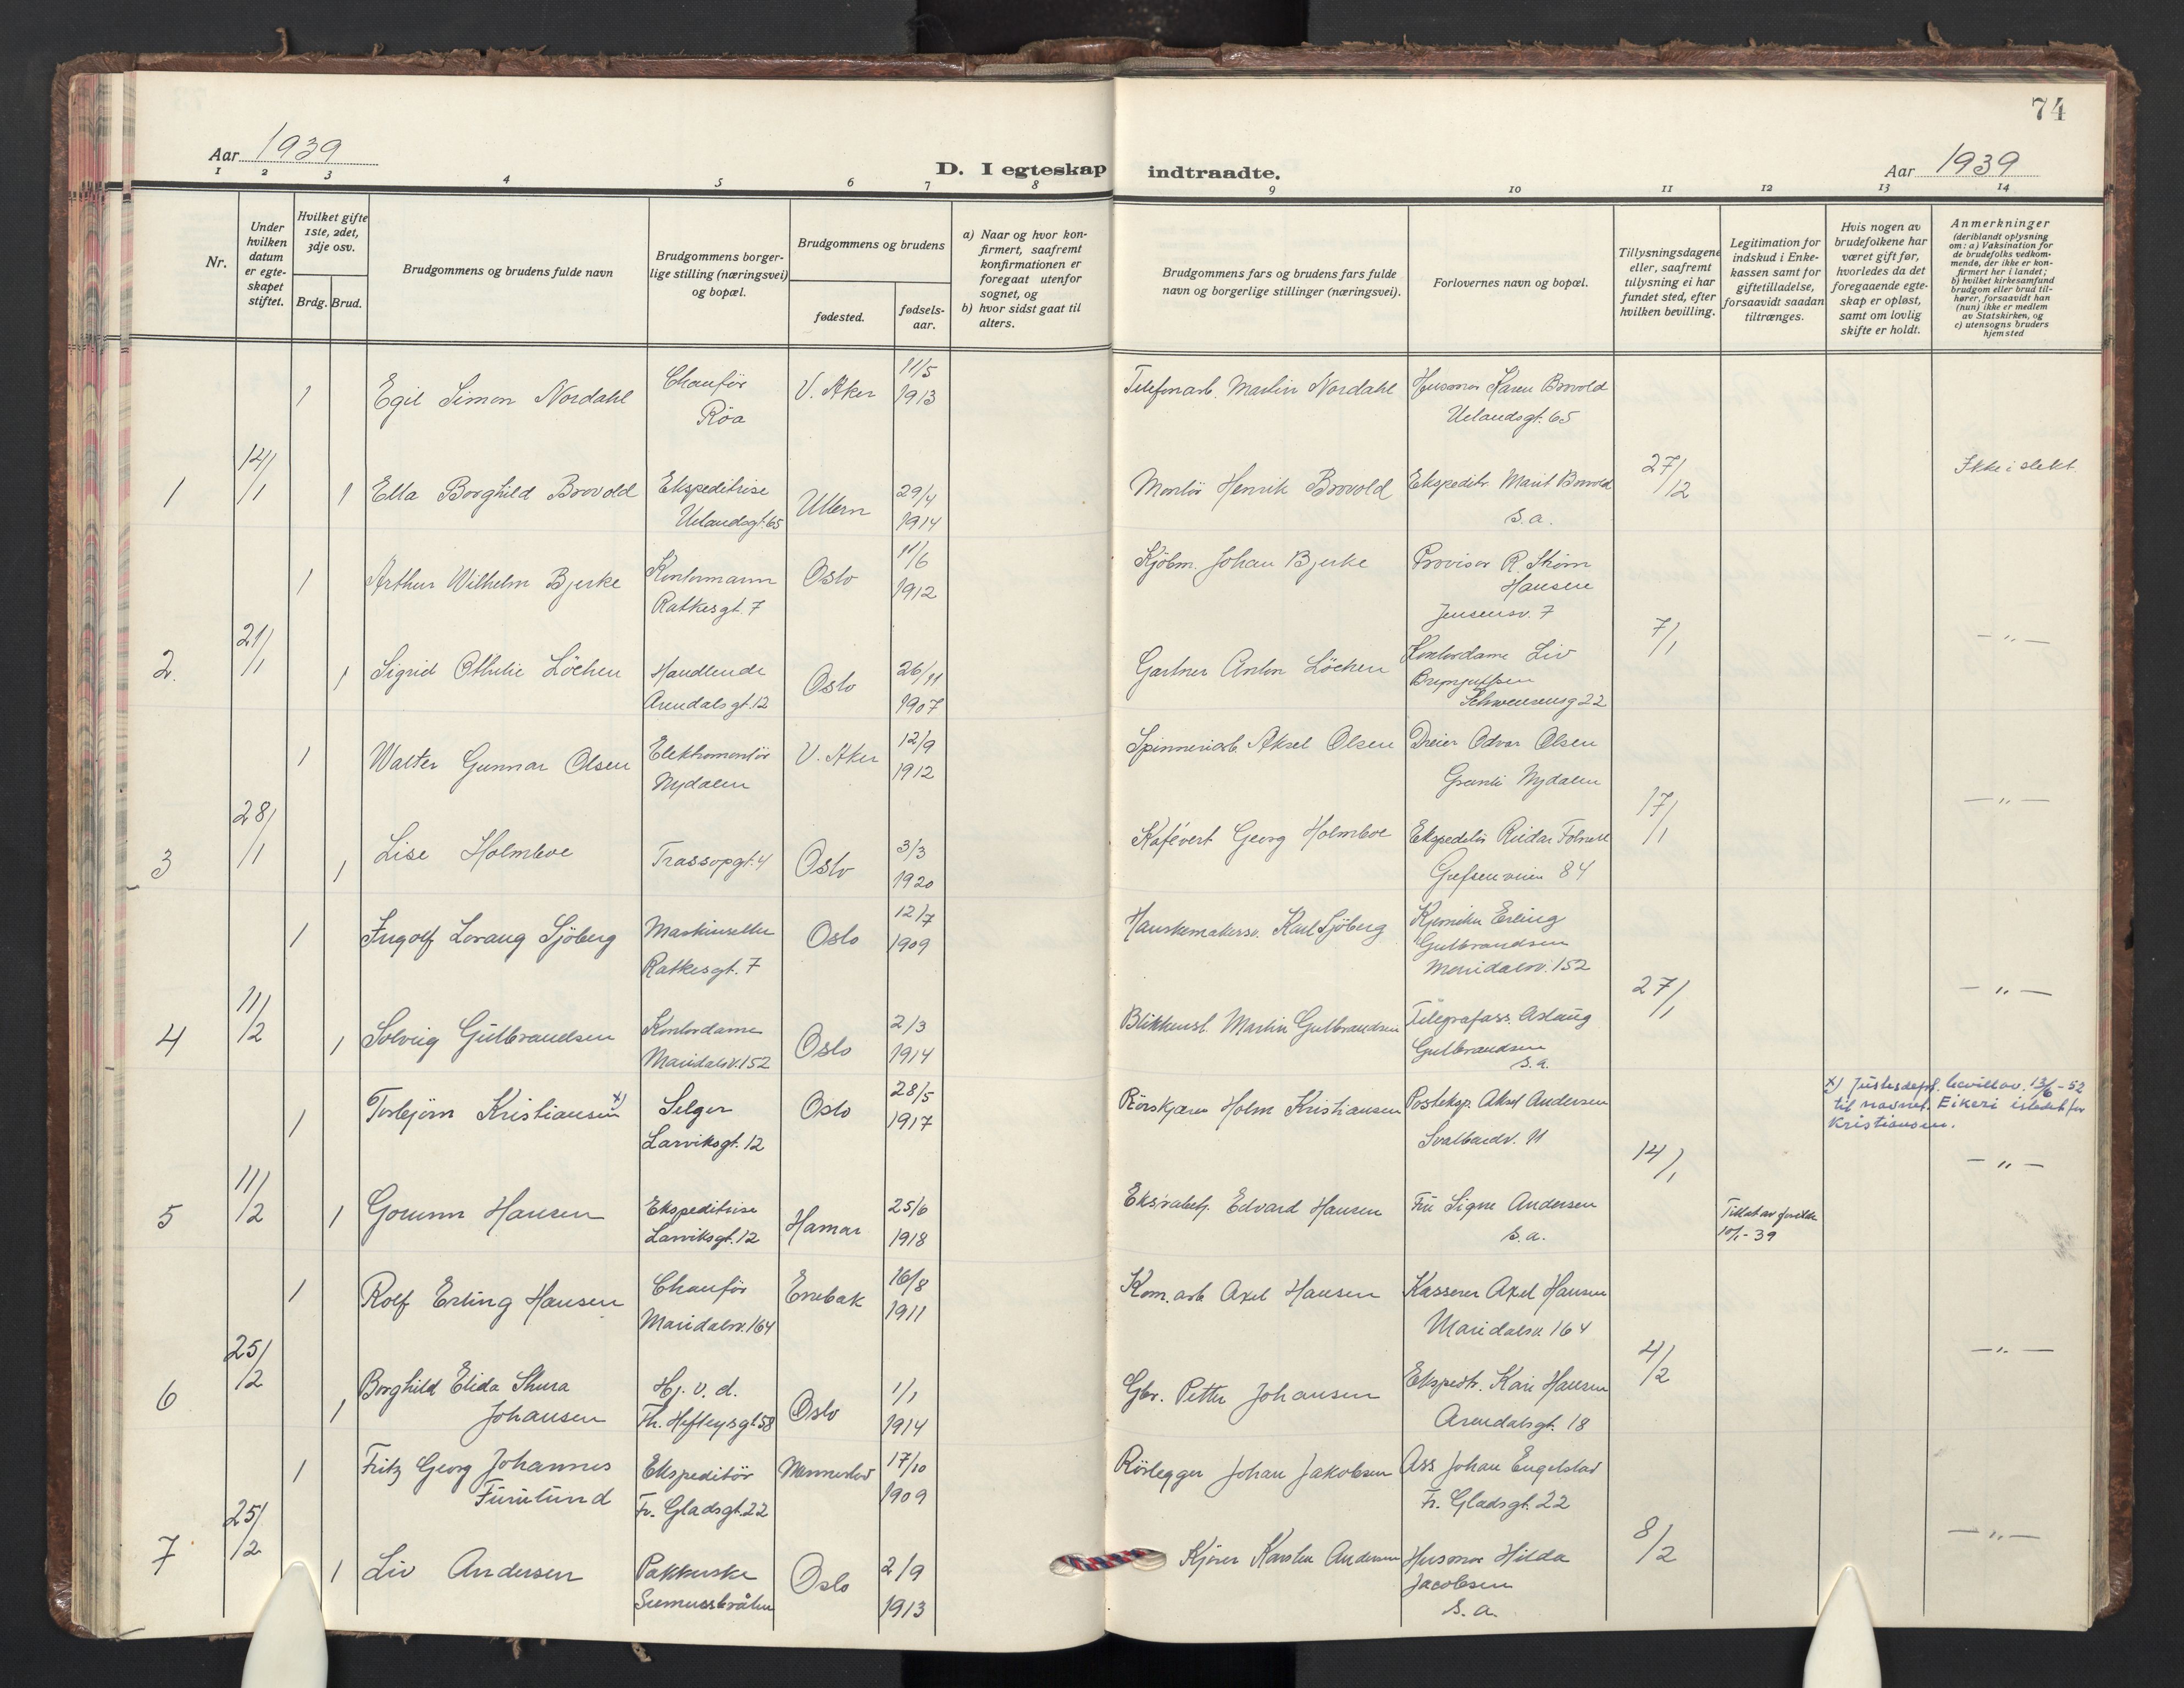 74
Aar 1939
D. I egteskap indtraadte.
Aar 1939
1 2 3 4 5 6 7 8 9 10 11 12 13 14
Nr.
Under hvilken datum er egteskapet stiftet.
Hvilket gifte 1ste, 2det, 3dje osv.
Brdg. Brud.
Brudgommens og brudens fulde navn
Brudgommens borgerlige stilling (næringsvei) og bopæl.
Brudgommens og brudens
fødested.
fødsels-aar.
a) Naar og hvor konfirmert, saafremt konfirmationen er foregaat utenfor sognet, og
b) hvor sidst gaat til alters.
Brudgommens fars og brudens fars fulde navn og borgerlige stillinger (næringsvei).
Forlovernes navn og bopæl.
Tillysningsdagene eller, saafremt tillysning ei har fundet sted, efter hvilken bevilling.
Legitimation for indskud i Enkekassen samt for giftetilladelse, forsaavidt saadan tiltrænges.
Hvis nogen av brudefolkene har været gift før, hvorledes da det foregaaende egteskap er opløst, samt om lovlig skifte er holdt.
Anmerkninger
(deriblandt oplysning om: a) Vaksination for de brudefolks vedkommende, der ikke er konfirmert her i landet; b) hvilket kirkesamfund brudgom eller brud tilhører, forsaavidt han (hun) ikke er medlem av Statskirken, og c) utensogns bruders hjemsted
1 Egil Simon Nordahl Chauför Röa V. Aker 11/5 1913 Telefonarb. Martin Nordahl Husmor Karen Brovold Uelandsgt. 65
1 14/1 1 Ella Borghild Brovold Ekspeditrise Uelandsgt. 65 Ullern 29/4 1914 Montör Henrik Brovold Ekspeditr. Marit Brovold s.a. 27/12 Ikke i slekt
1 Arthur Wilhelm Bjerke Kontormann Ratkesgt. 7 Oslo 11/6 1912 Kjöbm. Johan Bjerke Provisor R. Ström Hansen Jensensv. 7
2. 21/1 1 Sigrid Othilie Löchen Handlende Arendalsgt. 12 Oslo 26/11 1907 Gartner Anton Löchen Kontordame Liv Brynjulfsen Schwensensg 22 7/1 — " —
1 Walter Gunnar Olsen Elektromontör Nydalen V. Aker 12/9 1912 Spinneriarb. Aksel Olsen Dreier Odvar Olsen Nydalen
3 28/1 1 Lise Holmboe Trassopgt. 4 Oslo 3/3 1920 Kafévert Georg Holmboe Ekspeditör Reidar Grefsenveien 84 17/1 — " —
1 Ingolf Lorang Sjöberg Maskinsetter Ratkesgt. 7 Oslo 12/7 1909 Hanskemakersv. Karl Sjöberg Kjemiker Erling Gulbrandsen Maridalsv. 152
4 11/2 1 Solveig Gulbrandsen Kontordame Maridalsv. 152 Oslo 2/3 1914 Blikkensl. Martin Gulbrandsen Telegrafass. Aslaug Gulbrandsen s.a. 27/1 — " —
1 Torbjörn Kristiansen x) Selger Larviksgt. 12 Oslo 28/5 1917 Rörskjærer Holm Kristiansen Posteksp. Aksel Andersen Svalbardv. 11 x) Justisdept. bevill av. 13/6-52 til navnet Eikeri istedet for Kristiansen.
5 11/2 1 Gorunn Hansen Ekspeditrise Larviksgt. 12 Hamar 25/6 1918 Edvard Hansen Fru Signe Andersen s.a. 14/1 Tillat av foreldre 10/1-39 — " —
1 Rolf Erling Hansen Chauför Maridalsv. 164 Enebak 16/8 1911 Kom. arb Axel Hansen Kasserer Axel Hansen Maridalsv. 164
6 25/2 1 Borghild Elida Thura Johansen Hj. v. d. Th. Heftyesgt 58 Oslo 1/1 1914 Gbr. Petter Johansen Ekspeditr. Kari Hansen Arendalsgt. 18 4/2 — " —
1 Fritz Georg Johannes Furulund Ekspeditör Fr. Gladsgt. 22 17/10 1909 Rörlegger Johan Jakobsen Ass. Johan Engelstad Fr. Gladsgt. 22
7 25/2 1 Liv Andersen Pakkerske Oslo 2/9 1913 Kjörer Karsten Andersen Husmor Hilda Jacobsen s.a. 8/2 — " —